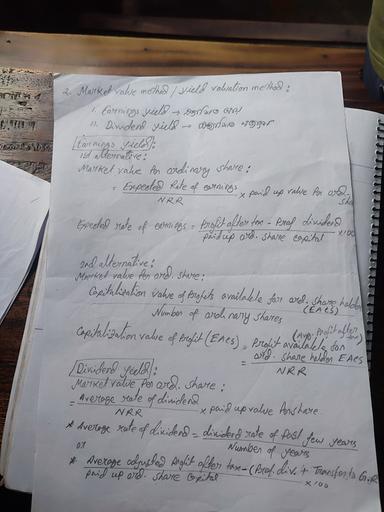 2. Market value method / yield valuation method:
i. Earnings yield →
ii. Dividend yield →
Earnings yield:
1st alternative:
Market value per ordinary share:
= Expected Rate of earnings / NRR × paid up value per ord. share
Expected rate of earnings = Profit after tax - Pref. dividend / paid up ord. share capital × 100
2nd alternative:
Market value per ord. share:
Capitalization value of Profits available for ord. share holders (EACS)
Number of ordinary shares
Capitalization value of Profit (EACS) = (Avg. Profit after tax) Profit available for ord. share holders EACS / NRR
Dividend yield:
Market value per ord. share:
= Average rate of dividend / NRR × paid up value per share
* Average rate of dividend = dividend rate of past few years / Number of years
or
* Average adjusted profit after tax - (Pref. div. + Transfer to G.R)
paid up ord. share capital × 100